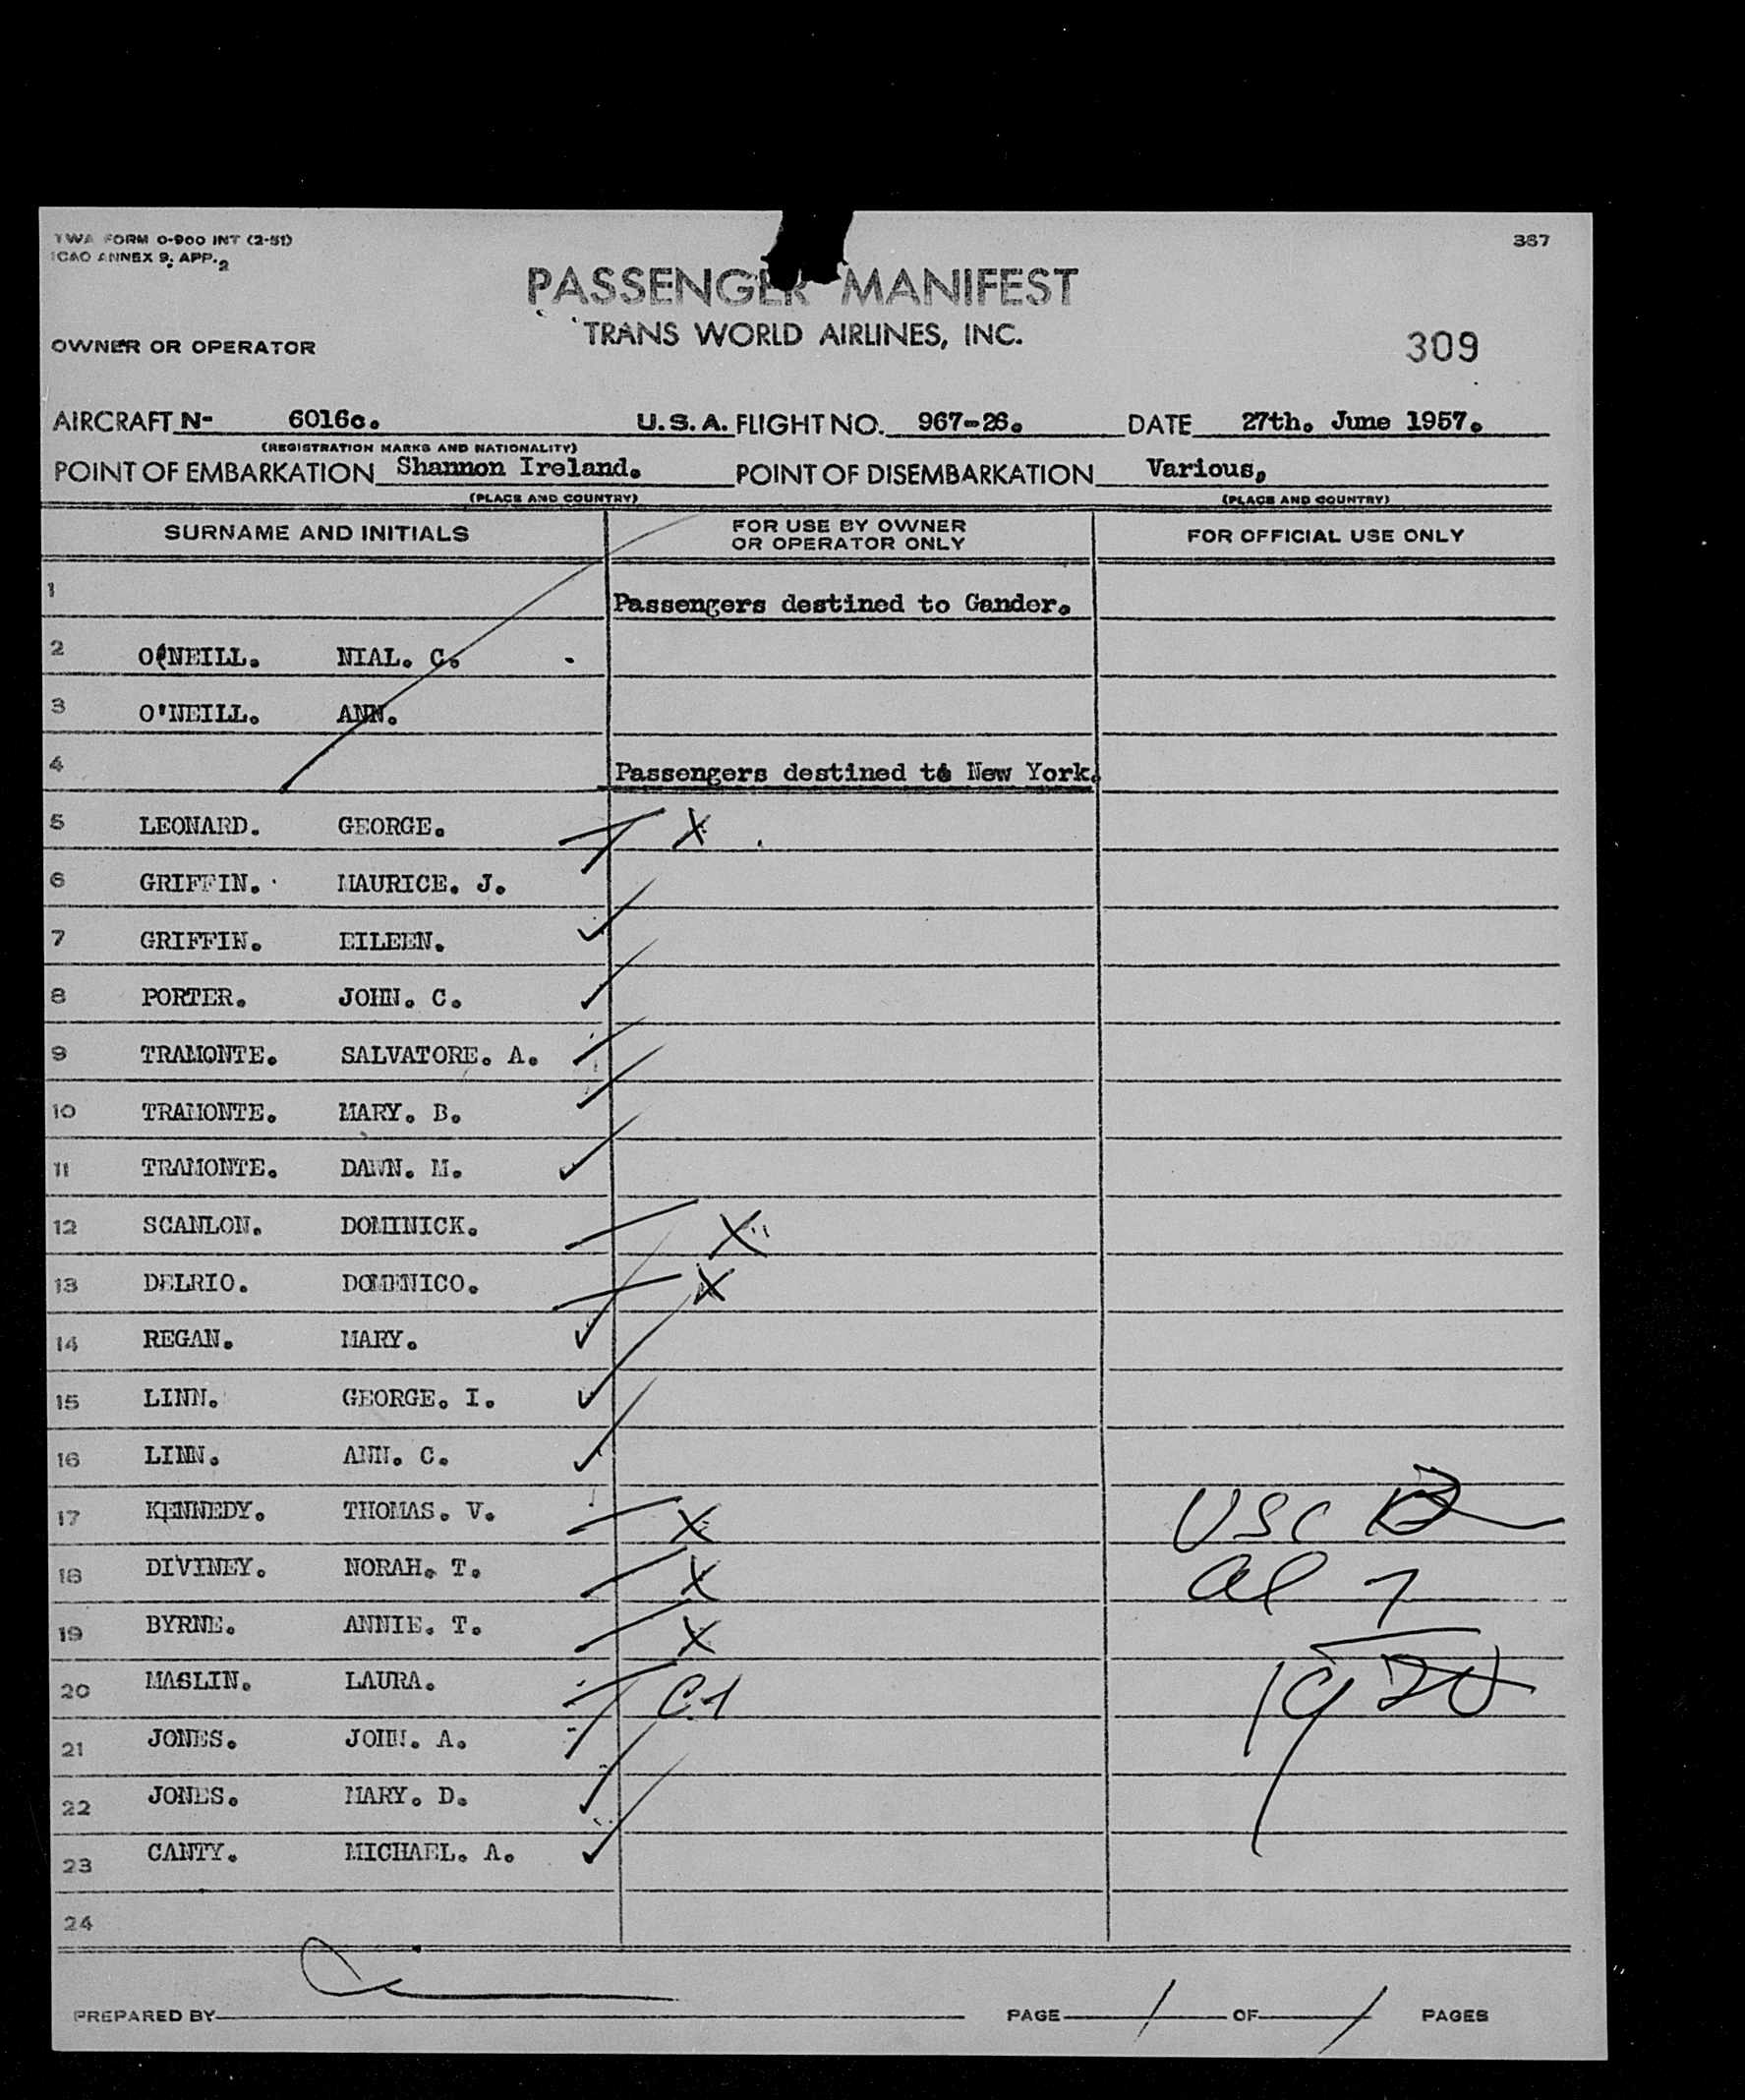 TWA FORM O-900 INT (2-51)
ICAO ANNEX 9, APP. 2
387
PASSENGER MANIFEST
TRANS WORLD AIRLINES, INC.
OWNER OR OPERATOR
309
AIRCRAFT N- 6016c. U.S.A. FLIGHT NO. 967-26. DATE 27th. June 1957.
(REGISTRATION MARKS AND NATIONALITY)
POINT OF EMBARKATION Shannon Ireland. POINT OF DISEMBARKATION Various,
(PLACE AND COUNTRY) (PLACE AND COUNTRY)
SURNAME AND INITIALS FOR USE BY OWNER OR OPERATOR ONLY FOR OFFICIAL USE ONLY
1 Passengers destined to Gander.
2 O'NEILL. NIAL. C.
3 O'NEILL. ANN.
4 Passengers destined to New York.
5 LEONARD. GEORGE. X
6 GRIFFIN. MAURICE. J.
7 GRIFFIN. EILEEN.
8 PORTER. JOHN. C.
9 TRAMONTE. SALVATORE. A.
10 TRAMONTE. MARY. B.
11 TRAMONTE. DAWN. M.
12 SCANLON. DOMINICK. X
13 DELRIO. DOMENICO. X
14 REGAN. MARY.
15 LINN. GEORGE. I.
16 LINN. ANN. C.
17 KENNEDY. THOMAS. V. X USC
18 DIVINEY. NORAH. T. X al 7
19 BYRNE. ANNIE. T. X
20 MASLIN. LAURA. C1 19
21 JONES. JOHN. A.
22 JONES. MARY. D.
23 CANTY. MICHAEL. A.
24
PREPARED BY PAGE 1 OF 1 PAGES